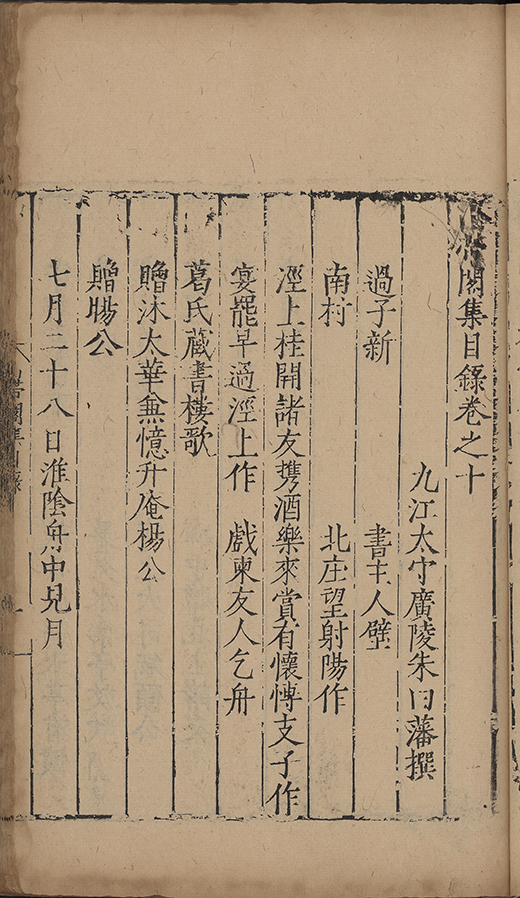 閣集目錄卷之十
九江太守廣陵朱曰藩撰
過子新　書主人壁
南村　北庄望射陽作
涇上桂開諸友携酒樂來賞有懷愽支子作
宴罷早過涇上作　戲柬友人乞舟
葛氏藏書樓歌
贈沐太華兼憶升庵楊公
贈暘公
七月二十八日淮陰舟中見月